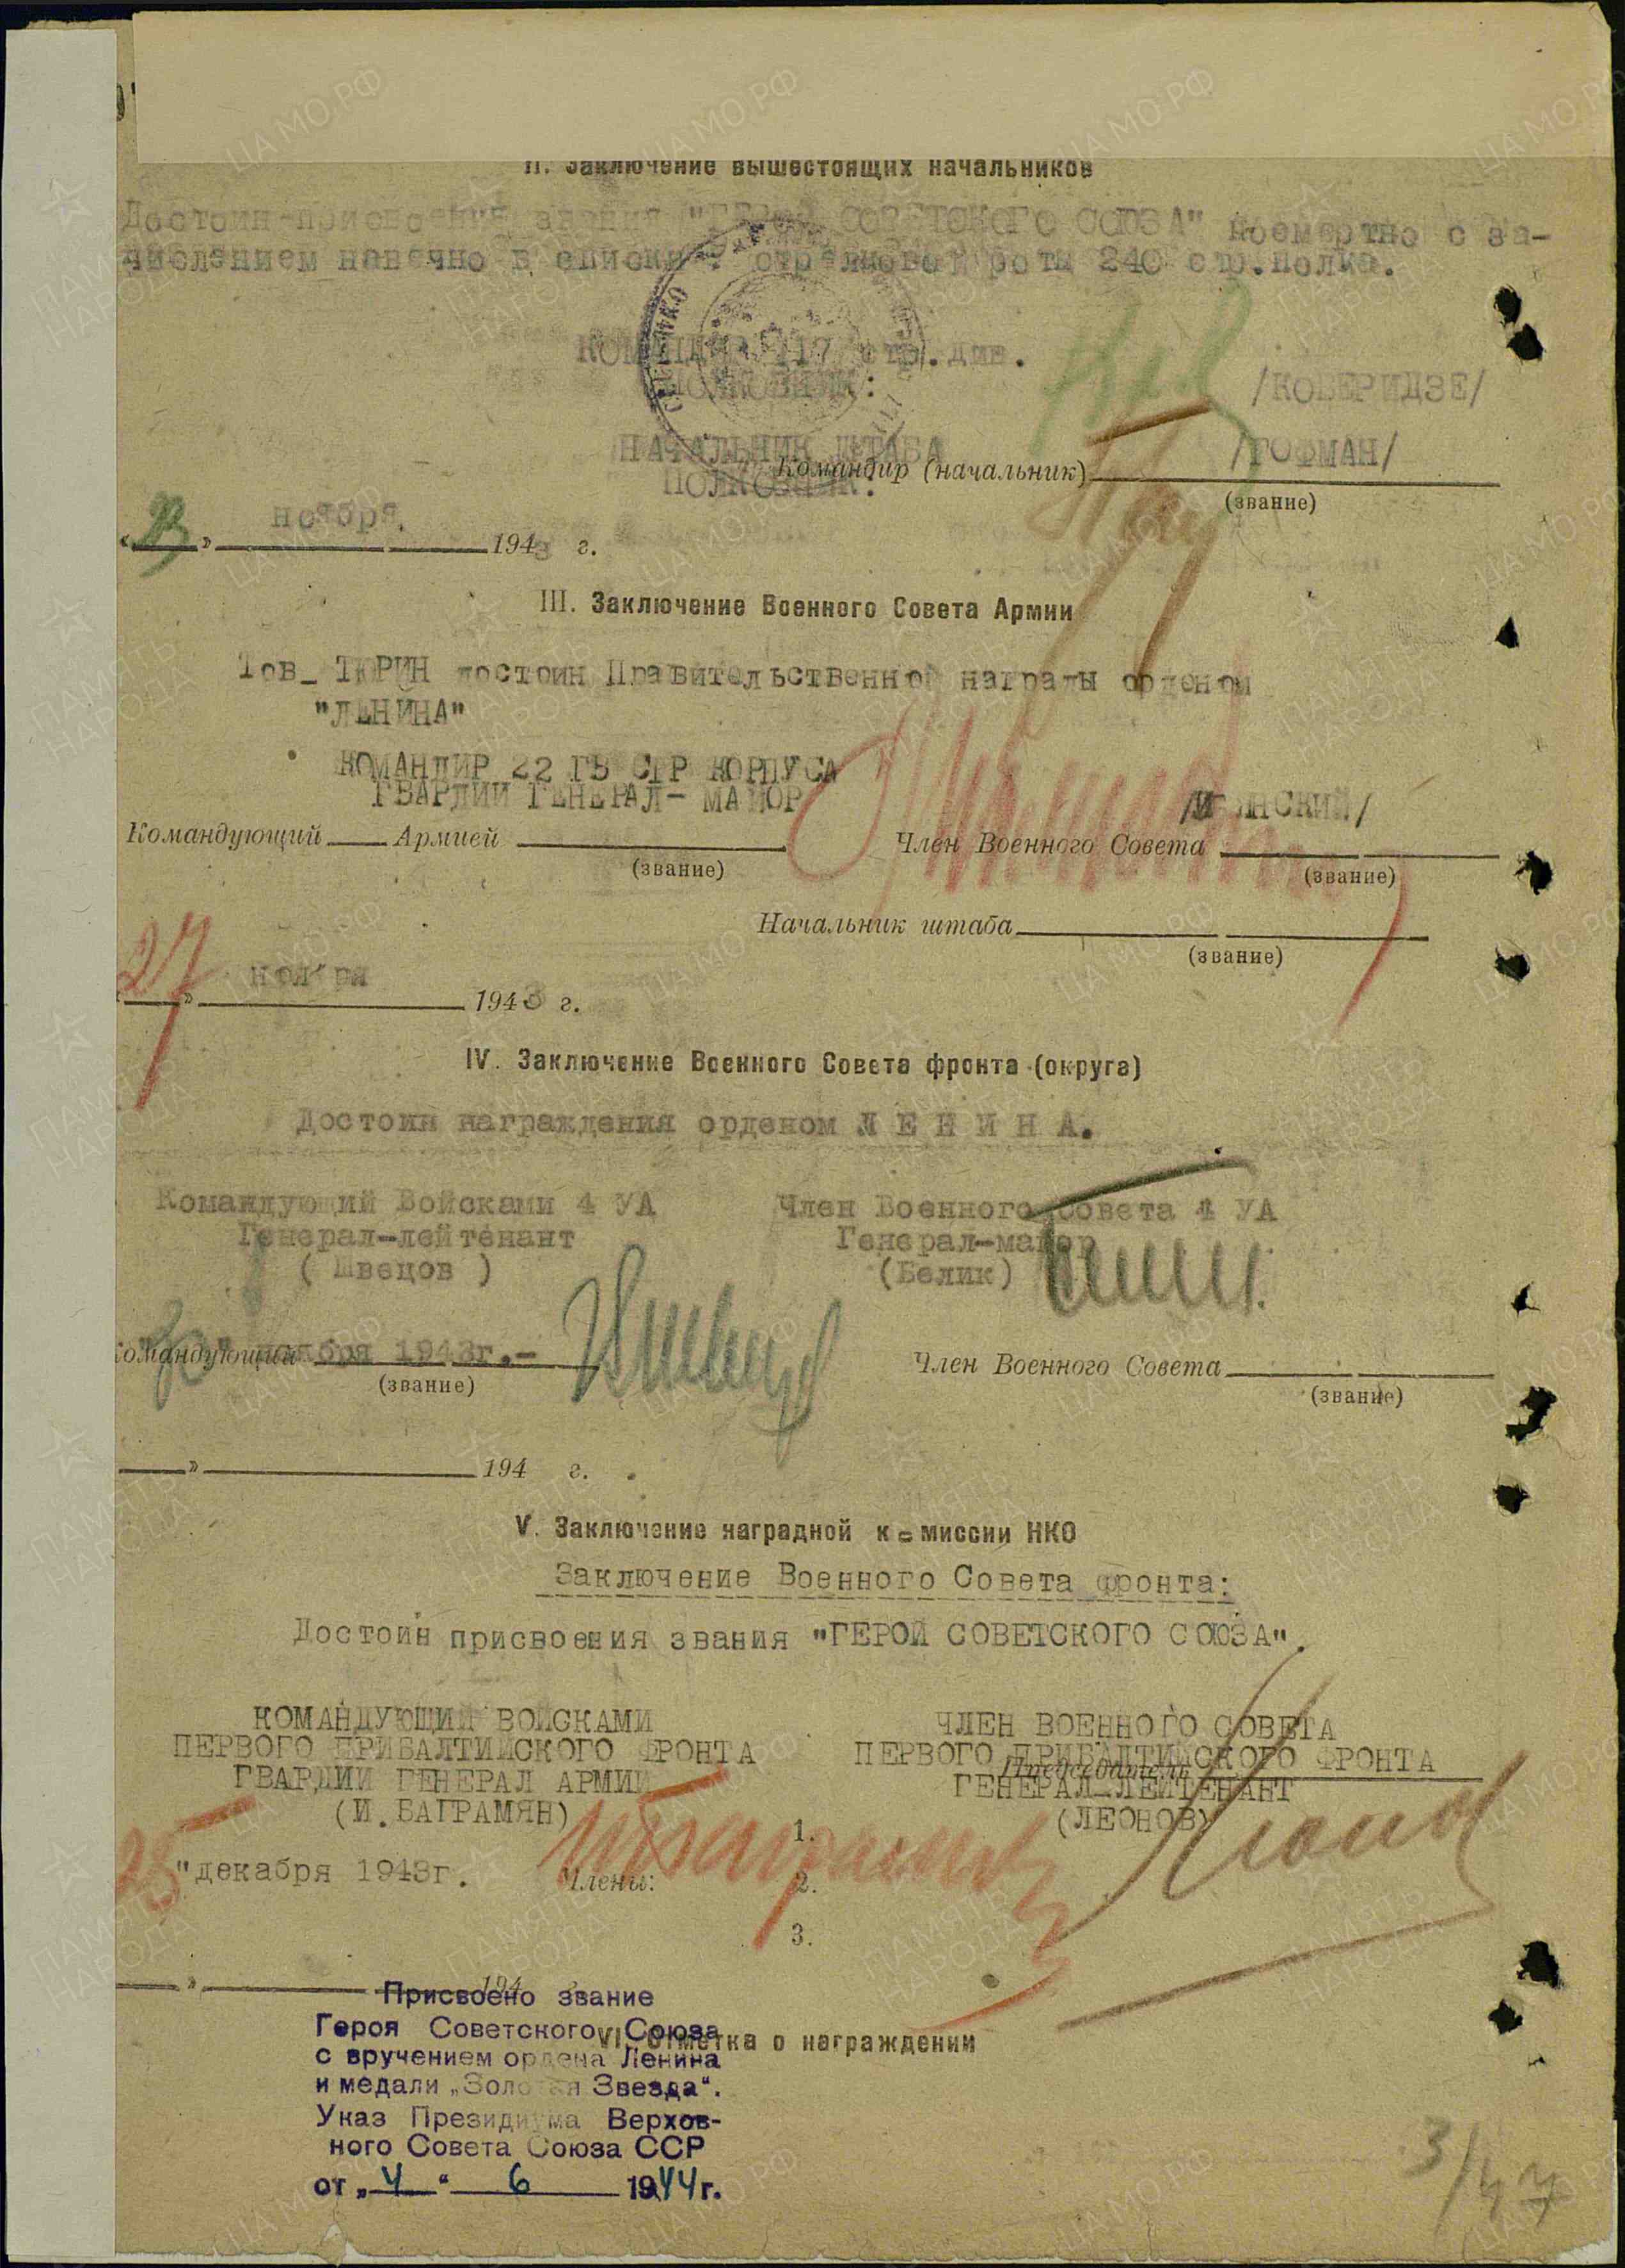 II. Заключение вышестоящих начальников
Достоин присвоения звания "ГЕРОЙ СОВЕТСКОГО СОЮЗА" посмертно с за-
числением навечно в списки стрелковой роты 240 стр.полка.
КОМАНДИР 117 стр.див.
ПОЛКОВНИК:
/КОБЕРИДЗЕ/
НАЧАЛЬНИК ШТАБА
/ГОФМАН/
ПОЛКОВНИК:
Командир (начальник)
(звание)
ноября
« » 1943 г.
III. Заключение Военного Совета Армии
Тов_ ТЮРИН достоин Правительственной награды орденом
"ЛЕНИНА"
КОМАНДИР 22 ГВ СТР КОРПУСА
ГВАРДИИ ГЕНЕРАЛ- МАЙОР
Командующий Армией
(звание)
Член Военного Совета
(звание)
Начальник штаба
(звание)
27 ноября 1943 г.
IV. Заключение Военного Совета фронта (округа)
Достоин награждения орденом Л Е Н И Н А.
Командующий Войсками 4 УА
Генерал-лейтенант
( Швецов )
Член Военного Совета 4 УА
Генерал-майор
(Белик)
ноября 1943г.-
Командующий
(звание)
Член Военного Совета
(звание)
» 194 г.
V. Заключение наградной комиссии НКО
Заключение Военного Совета фронта:
Достоин присвоения звания "ГЕРОЙ СОВЕТСКОГО СОЮЗА".
КОМАНДУЮЩИЙ ВОЙСКАМИ
ПЕРВОГО ПРИБАЛТИЙСКОГО ФРОНТА
ГВАРДИИ ГЕНЕРАЛ АРМИИ
(И.БАГРАМЯН)
ЧЛЕН ВОЕННОГО СОВЕТА
ПЕРВОГО ПРИБАЛТИЙСКОГО ФРОНТА
Председатель
ГЕНЕРАЛ-ЛЕЙТЕНАНТ
(ЛЕОНОВ)
1.
25 "декабря 1943г.
Члены:
2.
3.
» 194
Присвоено звание
Героя Советского Союза
VI. Отметка о награждении
с вручением ордена Ленина
и медали „Золотая Звезда“.
Указ Президиума Верхов-
ного Совета Союза ССР
от „4“ 6 1944г.